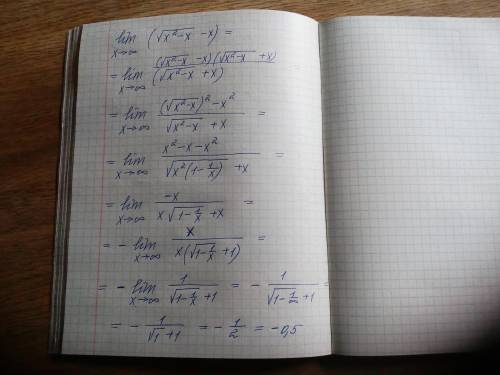 lim x→∞ (√(x²-x) - x) =
= lim x→∞ ((√(x²-x) - x)(√(x²-x) + x))/(√(x²-x) + x)
= lim x→∞ ((√(x²-x))² - x²)/(√(x²-x) + x) =
= lim x→∞ (x² - x - x²)/(√(x²(1-1/x)) + x) =
= lim x→∞ (-x)/(x√(1-1/x) + x) =
= - lim x→∞ x/(x(√(1-1/x) + 1)) =
= - lim x→∞ 1/(√(1-1/x) + 1) = - 1/(√(1-1/∞) + 1) =
= - 1/(√1 + 1) = - 1/2 = -0,5